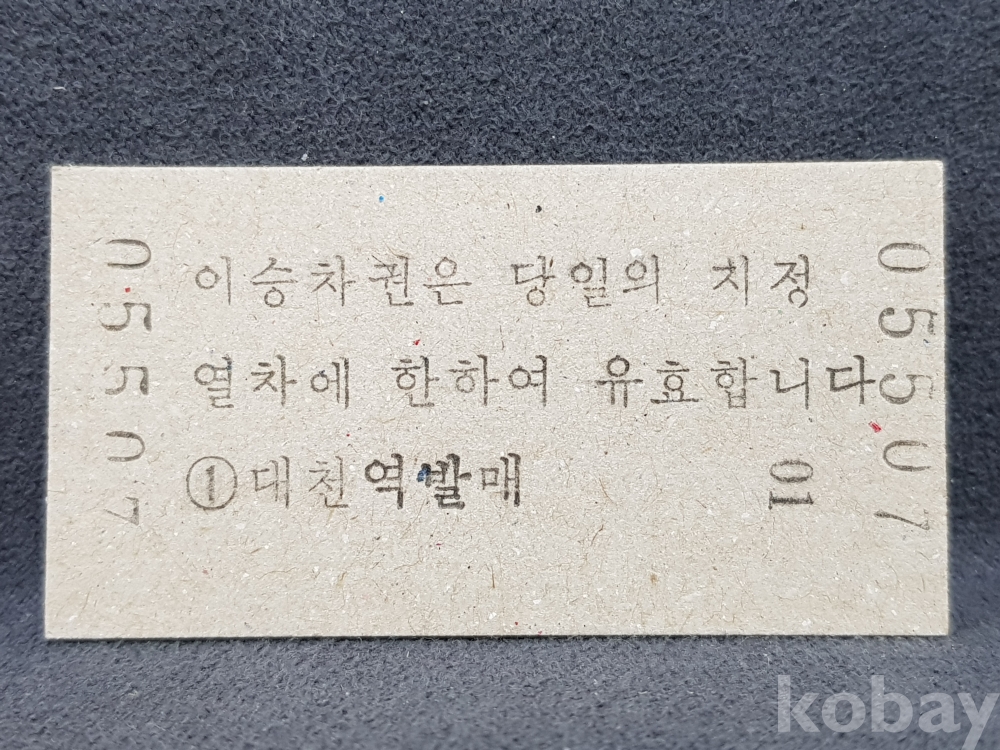 05507
이승차권은 당일의 지정
열차에 한하여 유효합니다
①대천역발매 01
05507
kobay